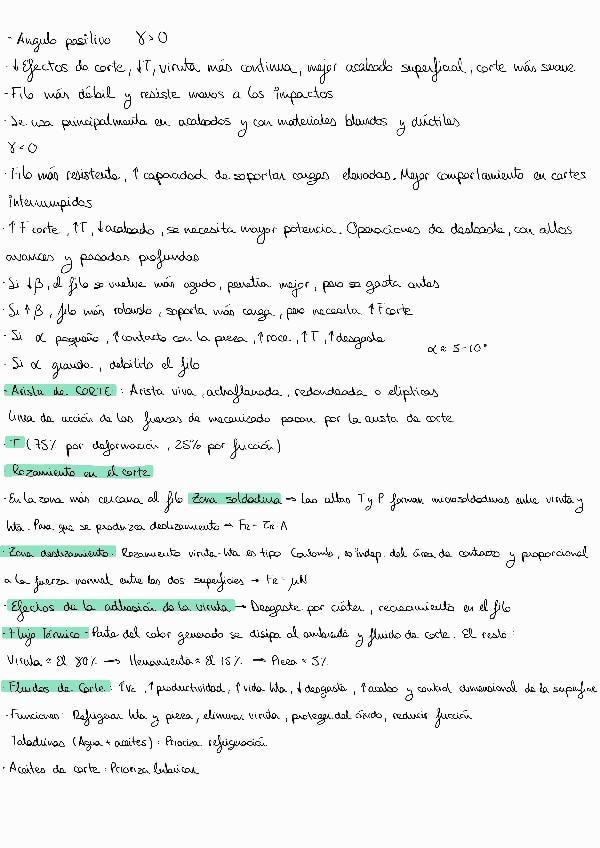 - Angulo positivo γ>0
- ↓ Efectos de corte, ↓T, viruta más continua, mejor acabado superficial, corte más suave
- Filo más débil y resiste menos a los impactos
- Se usa principalmente en acabados y con materiales blandos y dúctiles
γ<0
- Filo más resistente, ↑ capacidad de soportar cargas elevadas. Mejor comportamiento en cortes
interrumpidos
- ↑ F corte, ↑T, ↓acabado, se necesita mayor potencia. Operaciones de desbaste, con altos
avances y pasadas profundas
- Si ↓β, el filo se vuelve más agudo, penetra mejor, pero se gasta antes
- Si ↑β, filo más robusto, soporta más carga, pero necesita ↑Fcorte
- Si α pequeño, ↑contacto con la pieza, ↑roce, ↑T, ↑desgaste
α ≈ 5-10°
- Si α grande, debilita el filo
- Arista de CORTE: Arista viva, achaflanada, redondeada o elípticas
Línea de acción de las fuerzas de mecanizado pasan por la arista de corte
- T (75% por deformación, 25% por fricción)
Rozamiento en el corte
- En la zona más cercana al filo Zona soldadura → Las altas T y P forman microsoldaduras entre viruta y
hta. Para que se produzca deslizamiento → FR = τR·A
- Zona deslizamiento: Rozamiento viruta-hta es tipo Coulomb, es indep. del área de contacto y proporcional
a la fuerza normal entre las dos superficies → FR = μN
- Efectos de la adhesión de la viruta → Desgaste por cráter, recrecimiento en el filo
- Flujo Térmico - Parte del calor generado se disipa al ambiente y fluido de corte. El resto:
Viruta ≈ El 80% → Herramienta ≈ El 15% → Pieza ≈ 5%
- Fluidos de Corte: ↑Vc, ↑productividad, ↑vida hta, ↓desgaste, ↑acabo y control dimensional de la superficie
- Funciones: Refrigerar hta y pieza, eliminar viruta, proteger del óxido, reducir fricción
Taladrinas (Agua + aceites): Prioriza refrigeración
- Aceites de corte: Priorizan lubricar